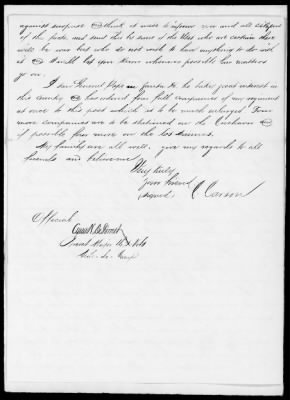 against surprise I think it well to inform you and all citizens
of the facts and sent this by some of the Utes who are certain there
will be war but who do not wish to have anything to do with
it. I will let you know whenever possible how matters
go on.
I saw General Pope he takes great interest in
this country & has ordered four full companies of my regiment
at once to this post which is to be much enlarged. Four
more companies are to be stationed on the &
if possible four more on the las Animas.
My family are all well. give my regards to all
friends and believe me
Very truly
your friend
(signed) C Carson
Official
Cyrus
Major
Aid-de-Camp